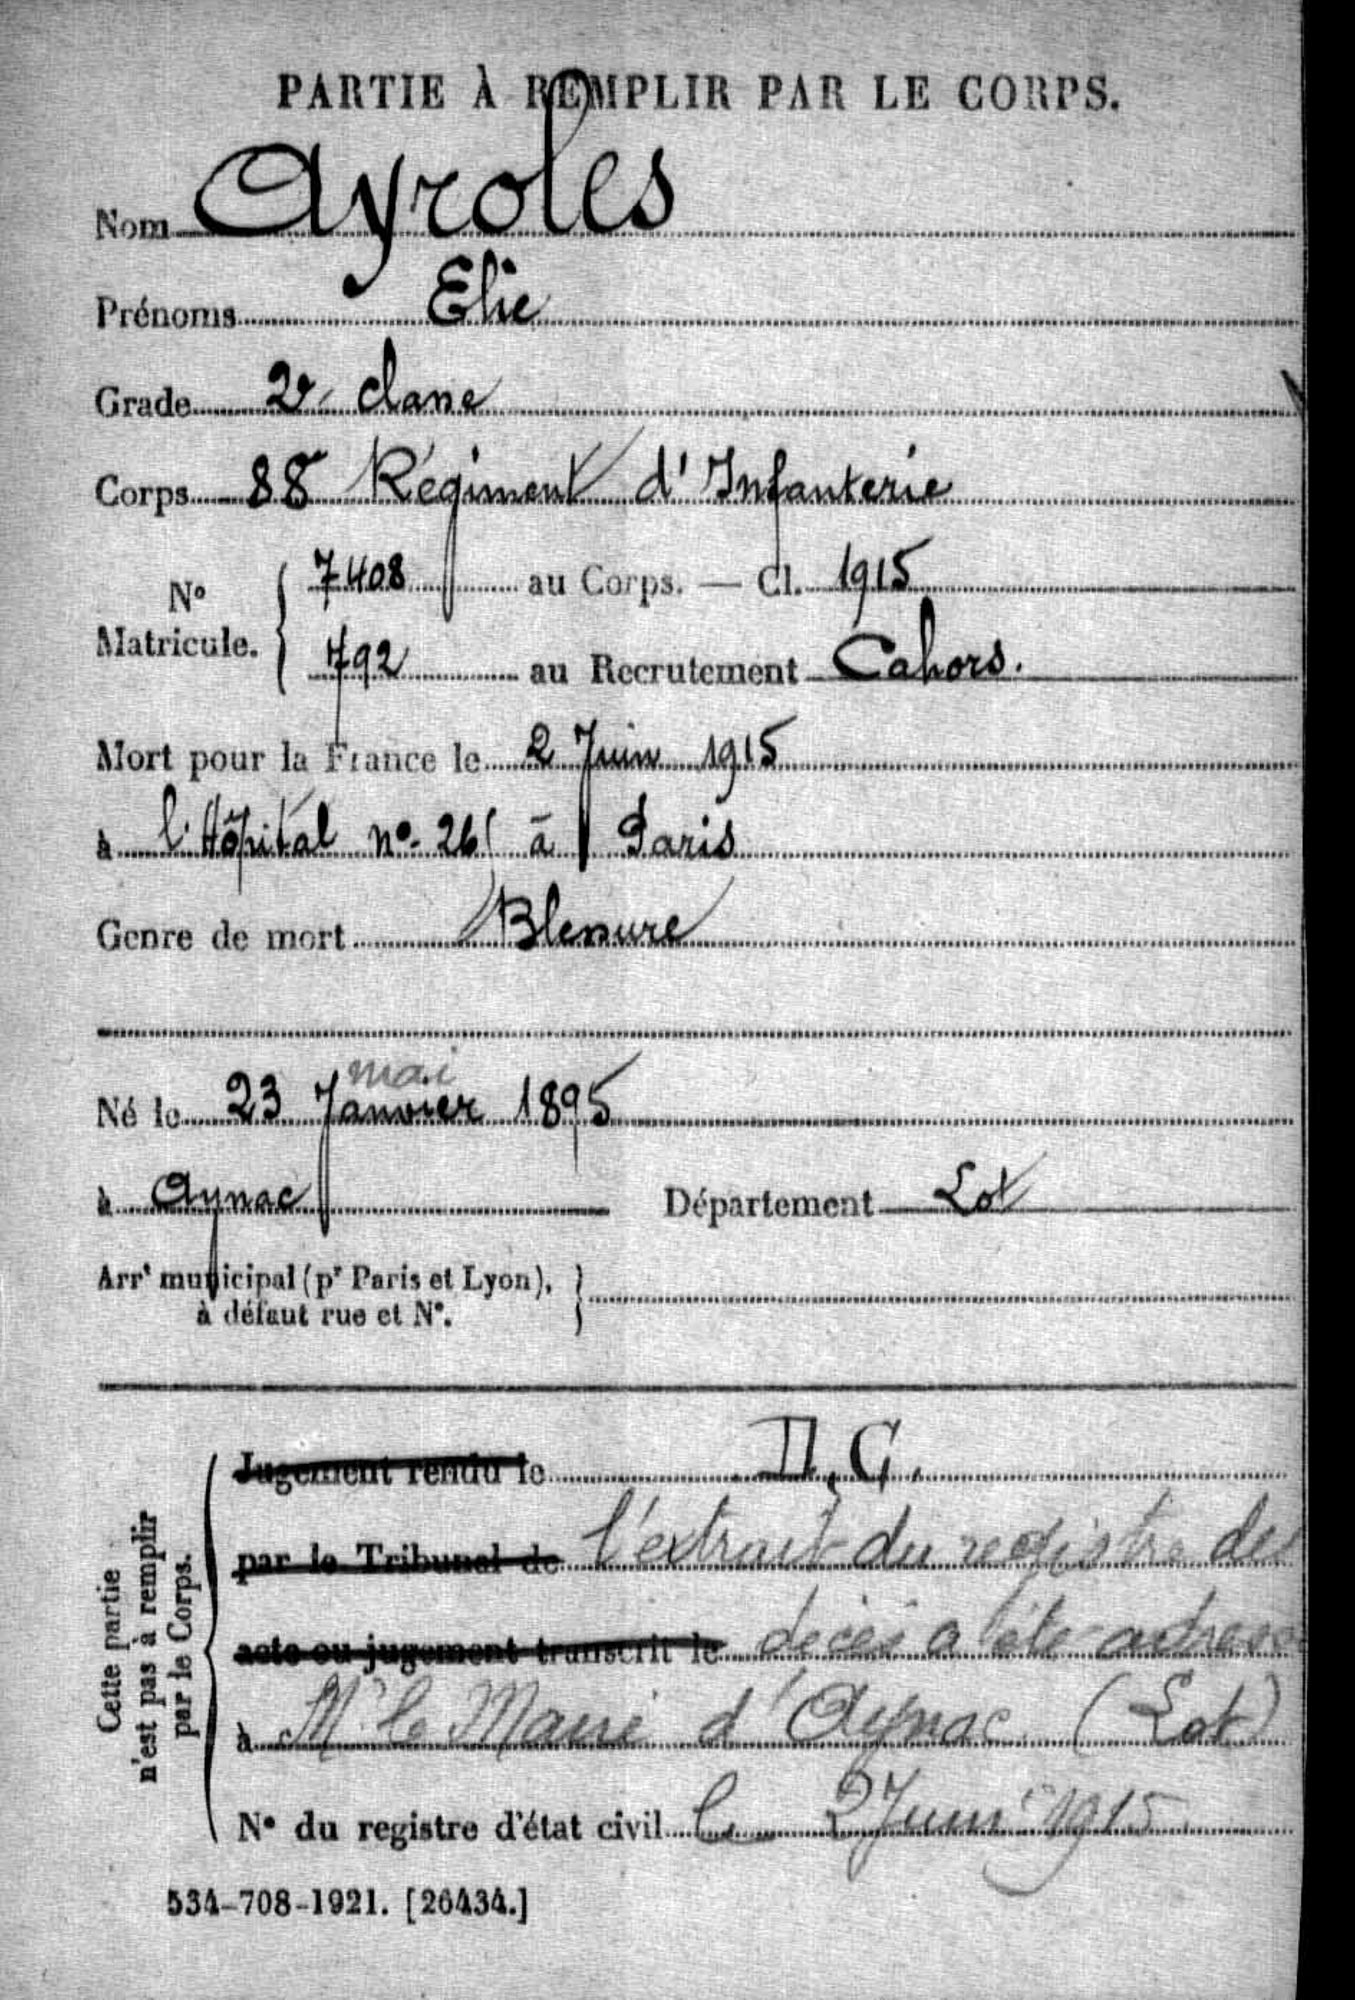 PARTIE À REMPLIR PAR LE CORPS.
Nom Ayroles
Prénoms Elie
Grade 2e classe
Corps 88 Régiment d'Infanterie
N° Matricule. 7408 au Corps. — Cl. 1915
792 au Recrutement Cahors.
Mort pour la France le 2 Juin 1915
à l'Hôpital n° 26 à Paris
Genre de mort Blessure
mai
Né le 23 Janvier 1895
à Aynac Département Lot
Arrt municipal (pr Paris et Lyon),
à défaut rue et N°.
Cette partie
n'est pas à remplir
par le Corps.
Jugement rendu le D.G.
par le Tribunal de l'extrait du registre des
acte ou jugement transcrit le décès a été adressé
à Mr le Maire d'Aynac (Lot)
N° du registre d'état civil le 2 Juin 1915
534-708-1921. [26434.]